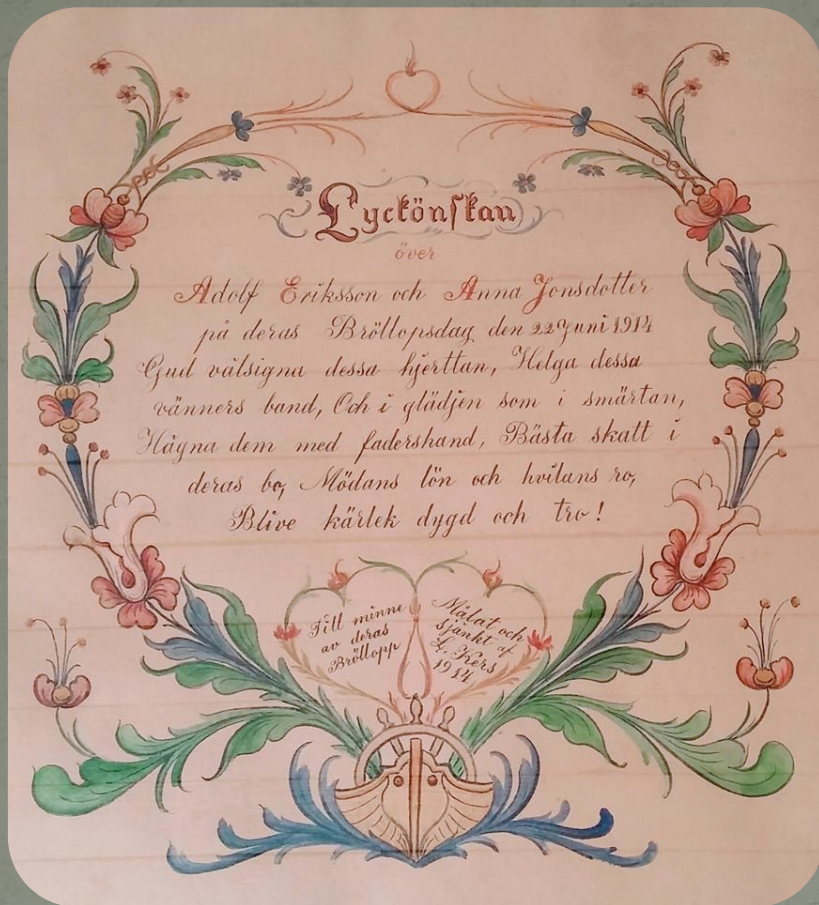 Lyckönskan
över
Adolf Eriksson och Anna Jonsdotter
på deras Bröllopsdag den 22 Juni 1914
Gud välsigna dessa hjerttan, Helga dessa
vänners band, Och i glädjen som i smärtan,
Hägna dem med fadershand, Bästa skatt i
deras bo, Mödans lön och hvilans ro,
Blive kärlek dygd och tro!
Till minne
av deras
Bröllopp
Målat och
sjänkt af
L. Kers
1914